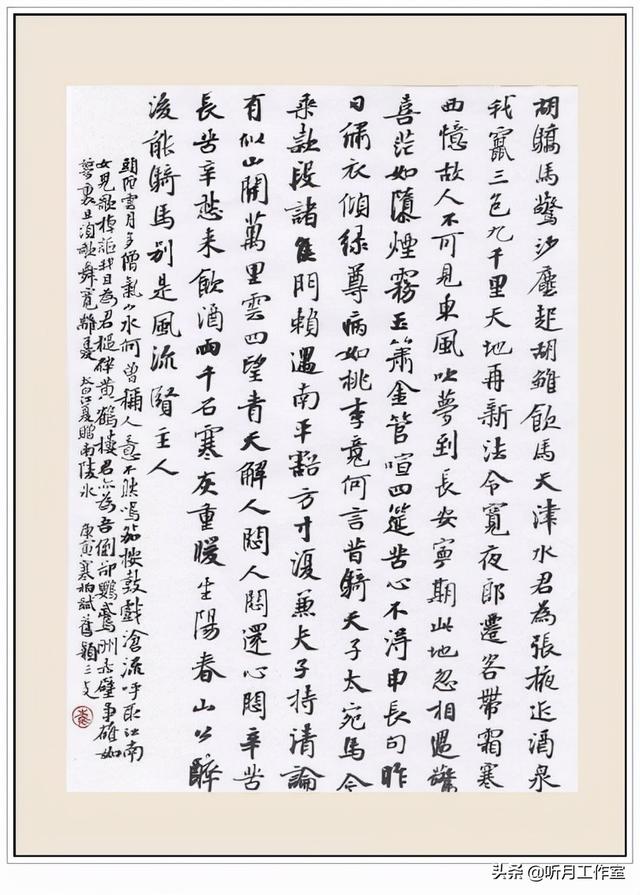 胡驕馬驚沙塵起胡雛飲馬天津水君為張掖近酒泉
我竄三色九千里天地再新法令寬夜郎遷客帶霜寒
西憶故人不可見東風吹夢到長安寧期此地忽相遇驚
喜茫如墮煙霧玉簫金管喧四筵苦心不得申長句昨
日繡衣傾綠尊病如桃李竟何言昔騎天子太宛馬今
乘款段諸侯門賴遇南平豁方寸復兼夫子持清論
有似山開萬里雲四望青天解人悶人悶還心悶辛苦
長苦辛愁來飲酒兩千石寒灰重暖生陽春山公醉
後能騎馬別是風流賢主人
頭陀雲月多僧氣山水何曾稱人意不然鳴笳按鼓戲滄流呼取江南
女兒歌棹謳我且為君槌碎黃鶴樓君亦為吾倒卻鸚鵡洲赤壁爭雄如
夢裏且須歌舞寬離憂 太白江夏贈南陵冰 庚寅寒
头条 @听月工作室